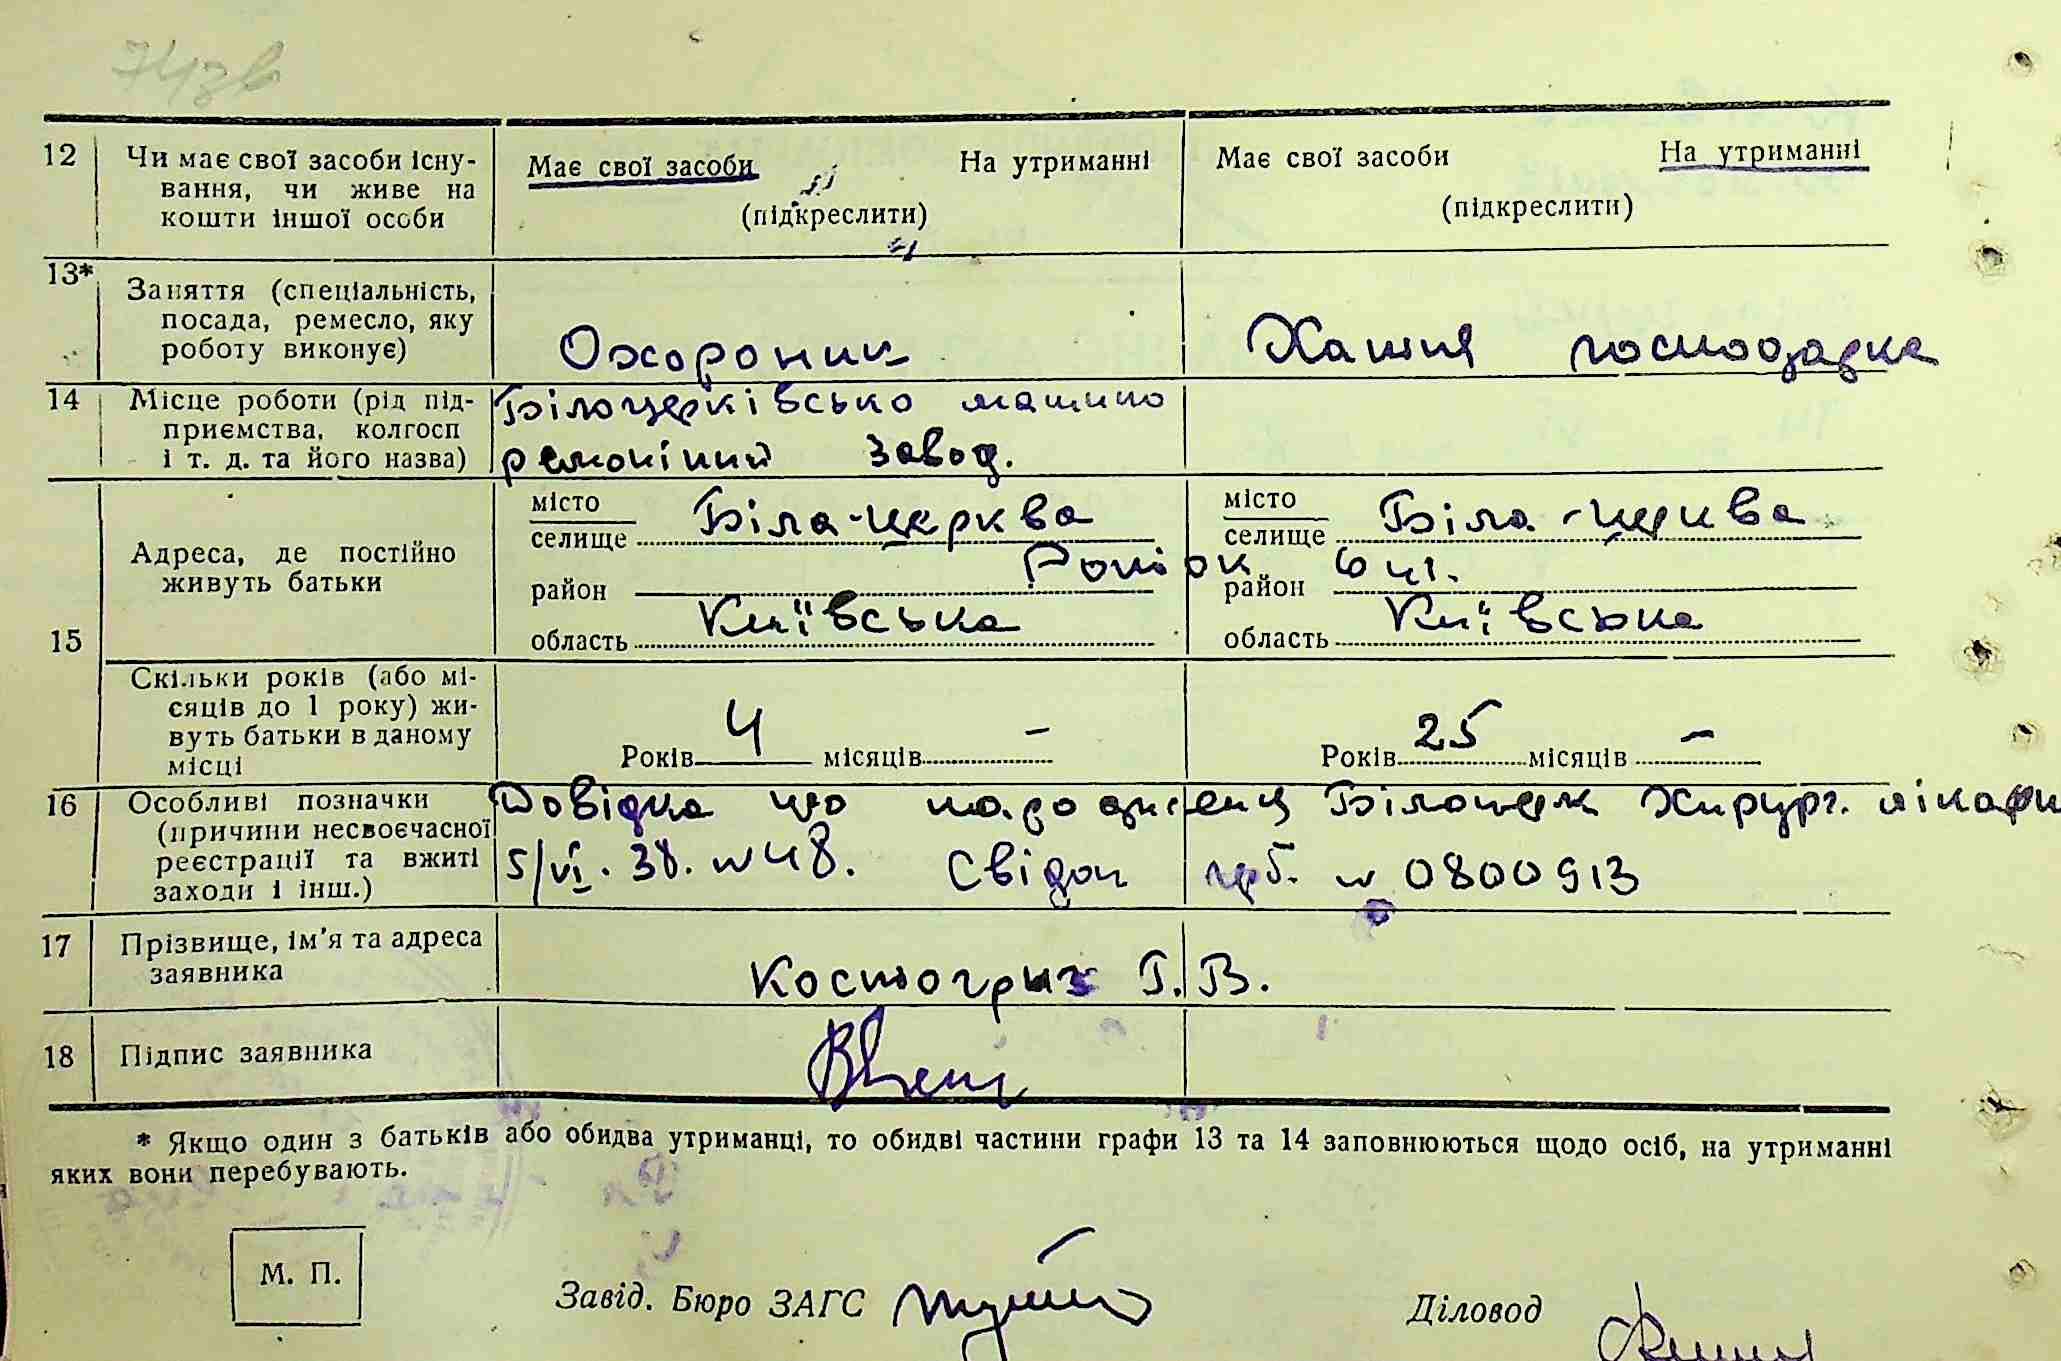 74зв
12 Чи має свої засоби існу-
вання, чи живе на
кошти іншої особи
Має свої засоби На утриманні
(підкреслити)
Має свої засоби На утриманні
(підкреслити)
13* Заняття (спеціальність,
посада, ремесло, яку
роботу виконує)
Охороник
Хатня господарка
14 Місце роботи (рід під-
приємства, колгосп
і т. д. та його назва)
Білоцерківсько машино
ремонтний завод.
15
Адреса, де постійно
живуть батьки
місто
селище Біла-церква
район
область Київська
місто
селище Біла-церква
район
область Київська
Скільки років (або мі-
сяців до 1 року) жи-
вуть батьки в даному
місці
Років 4 місяців —
Років 25 місяців —
16 Особливі позначки
(причини несвоєчасної
реєстрації та вжиті
заходи і інш.)
Довідка про народження Білоцерк Хирург. лікарн
5/VI. 38. № 48. Свідоц № 0800913
17 Прізвище, ім'я та адреса
заявника
Костогриз Г. В.
18 Підпис заявника
* Якщо один з батьків або обидва утриманці, то обидві частини графи 13 та 14 заповнюються щодо осіб, на утриманні
яких вони перебувають.
М. П.
Завід. Бюро ЗАГС
Діловод